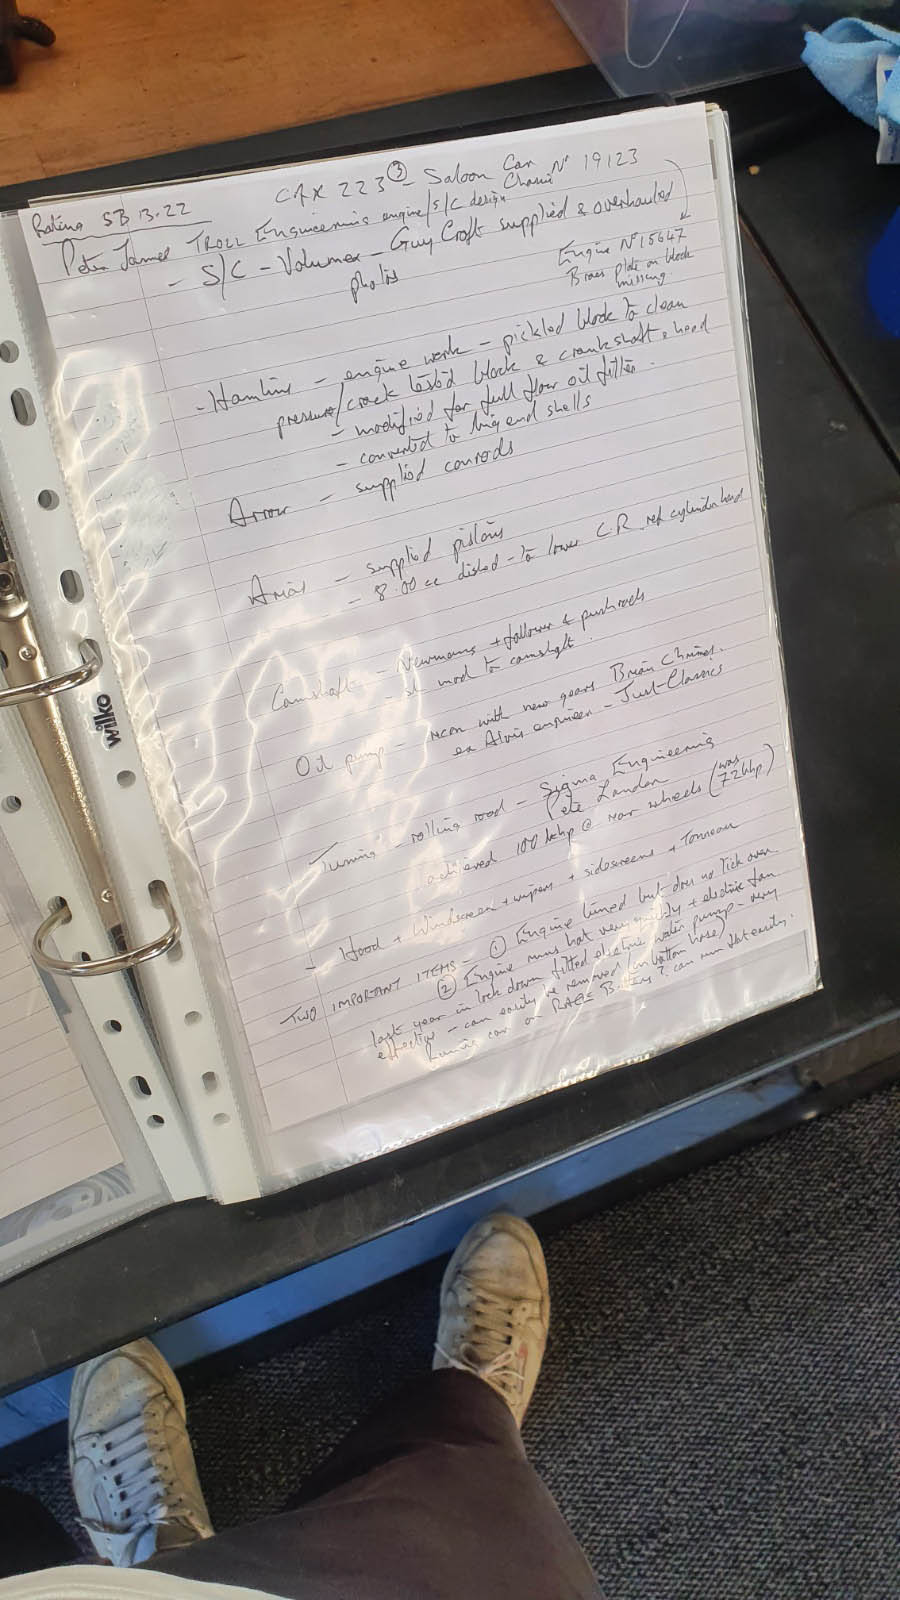 Rating SB 13.22
223 ③ - Saloon Car
Chassis Nº 19123
Peter James TROLL Engineering engine/s/c design
- S/C - Volumex - Guy Croft supplied & overhauled
photos
Engine Nº 15647
Brass plate on block
missing
- Hamlins - engine work - pickled block to clean
pressure/crack tested block & crankshaft & head
- modified for full flow oil filter.
- converted to big end shells
Arrow - supplied conrods
Arias - supplied pistons
- 8.00cc dished - to lower C.R. ref cylinder head
Camshaft - Newmans + follower & pushrods
- mod to camshaft.
Oil pump - recon with new gears Brian Chrimes.
ex Alvis engineer - Just Classics
Tuning - rolling road - Sigma Engineering
Pete Landon
achieved 100 bhp @ rear wheels (was
72bhp)
- Hood + Windscreen + wipers + sidescreens + Tonneau
TWO IMPORTANT ITEMS - ① Engine tuned but does no tick over
② Engine runs hot very quickly + electric fan
last year in lock down fitted electric water pump - very
effective - can easily be removed (in bottom hose)
Running car on RACE Battery? can run flat easily.
wilko